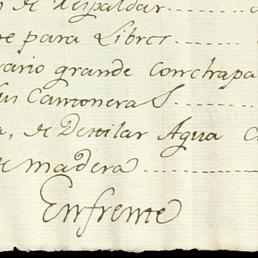 de Respaldar
para Libros
ario grande con trapa
sus Camoneras
, de Destilar Agua
de madera
Enfrente